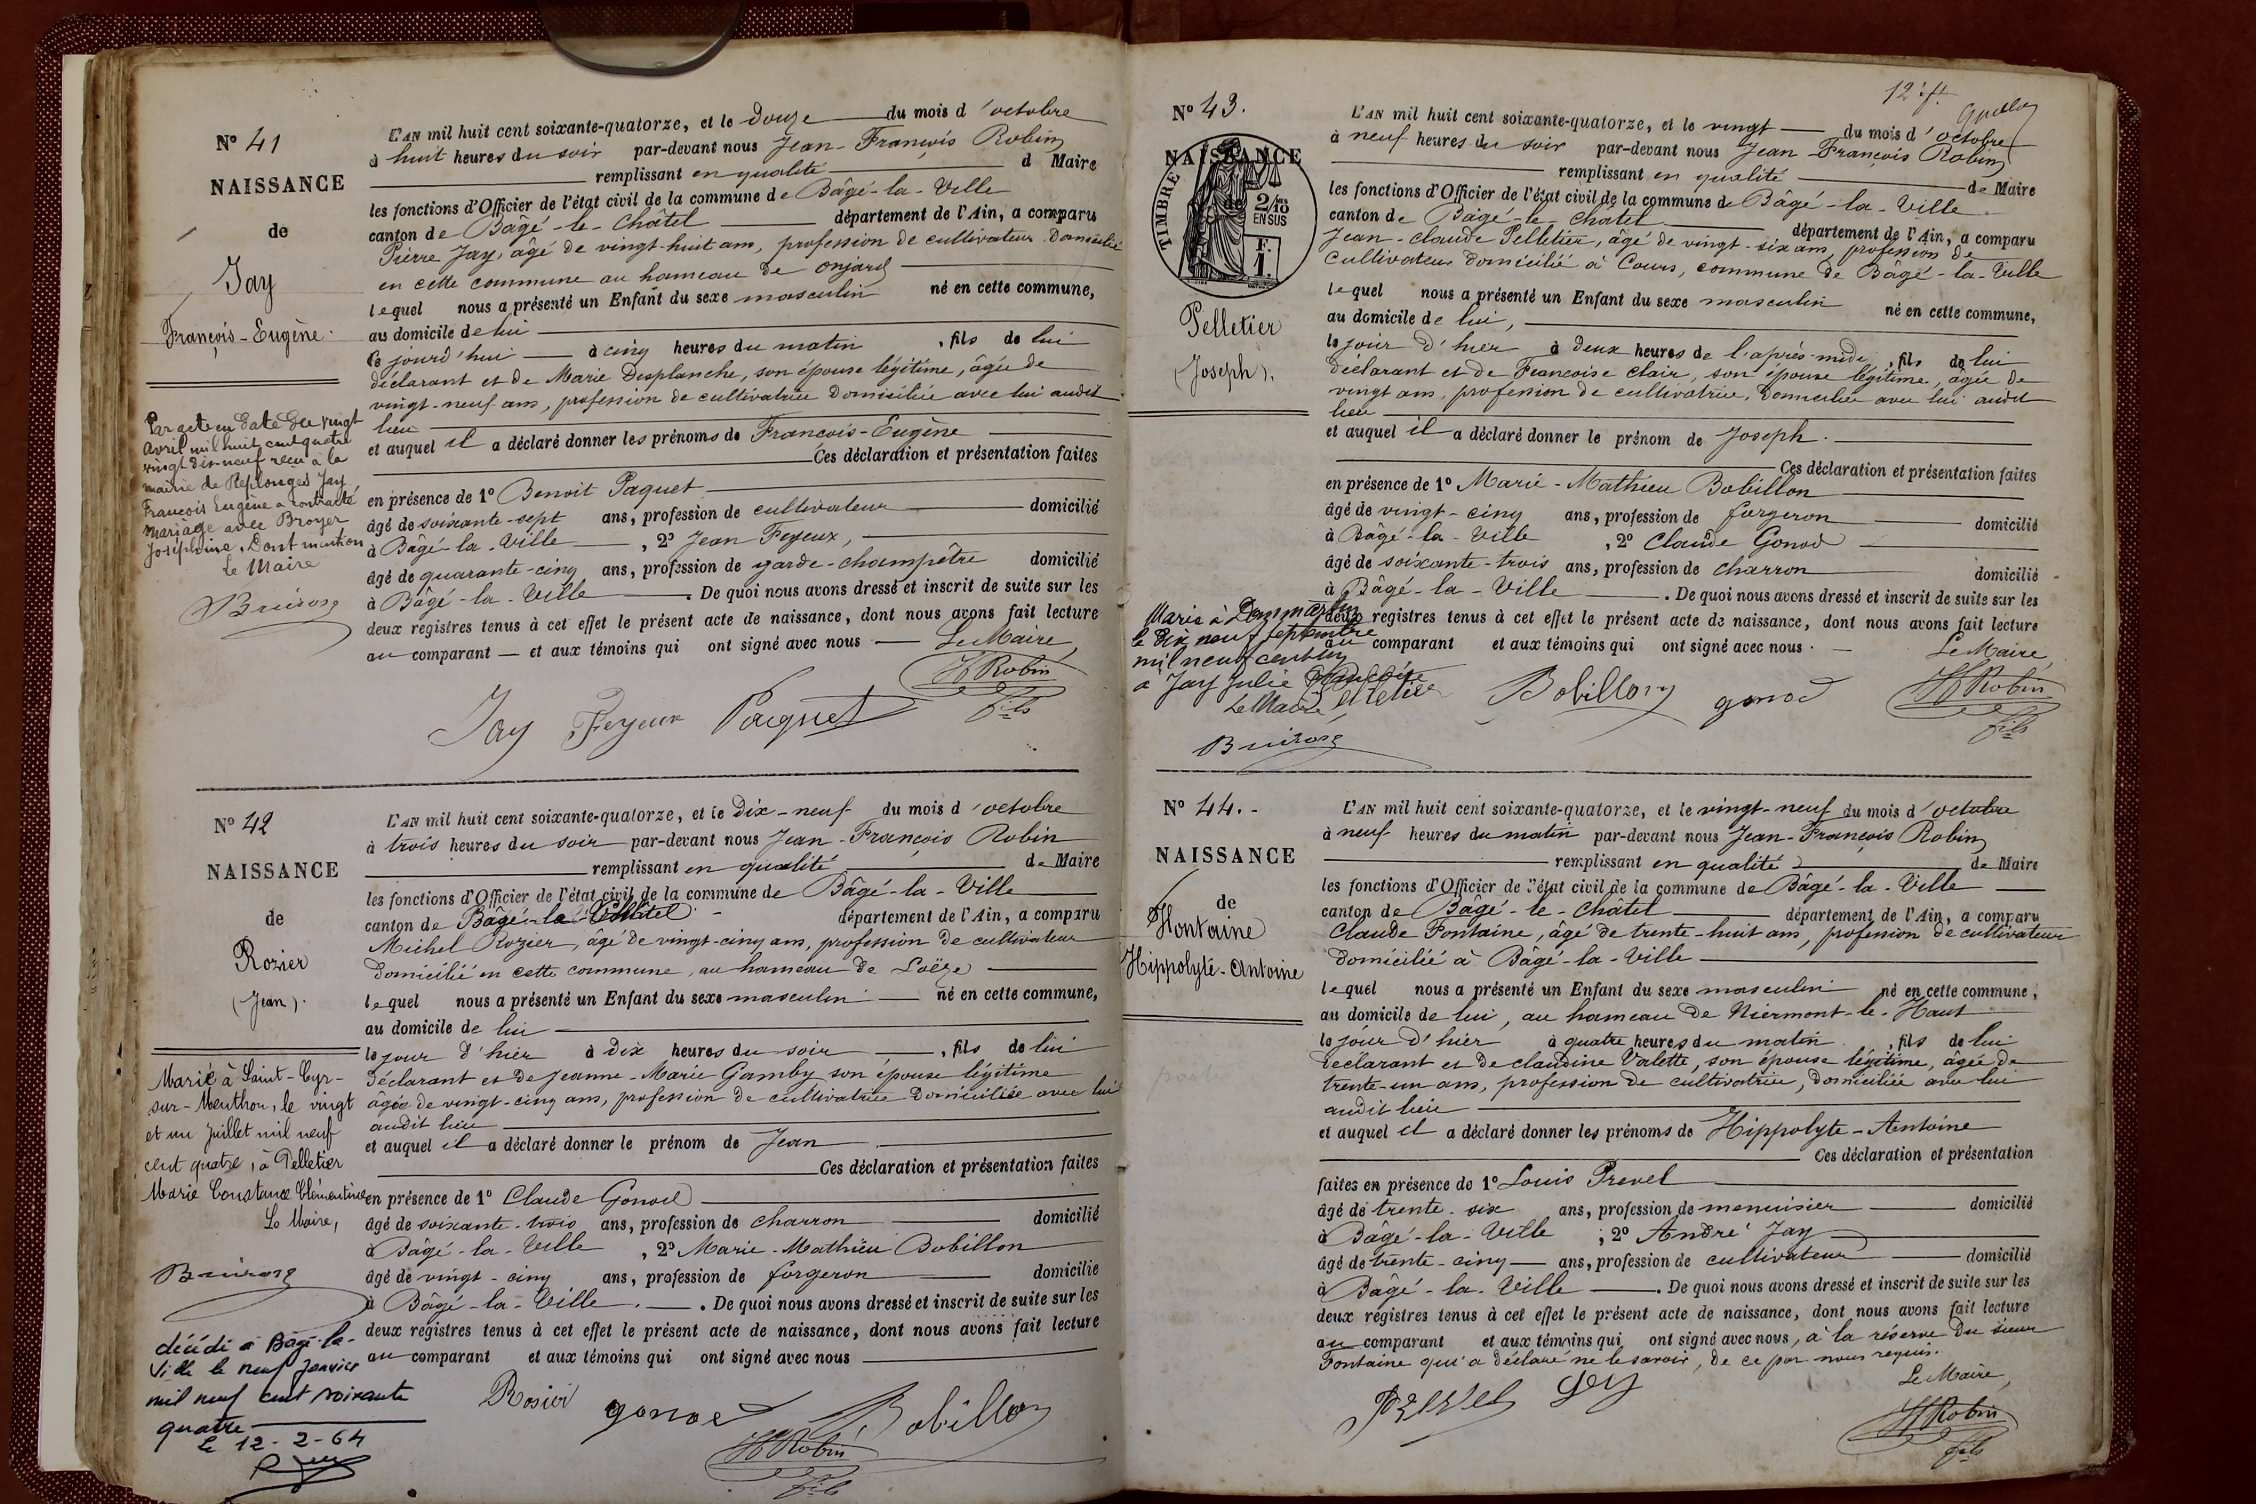 N° 41
NAISSANCE
de
Jay
François-Eugène.
Par acte en date du vingt
Avril mil huit cent quatre
vingt dix-neuf reçu à la
mairie de Replonges Jay
François Eugène a contracté
mariage avec Broyer
Joséphine, Dont mention
Le Maire
L'AN mil huit cent soixante-quatorze, et le douze du mois d'octobre
à huit heures du soir par-devant nous Jean-François Robin
remplissant en qualité d Maire
les fonctions d'Officier de l'état civil de la commune de Bâgé-la-Ville
canton de Bâgé-le-Châtel département de l'Ain, a comparu
Pierre Jay, âgé de vingt-huit ans, profession de cultivateur domicilié
en cette commune au hameau de Onjard
lequel nous a présenté un Enfant du sexe masculin né en cette commune,
au domicile de lui
ce jourd'hui à cinq heures du matin, fils de lui
déclarant et de Marie Desplanche, son épouse légitime, âgée de
vingt-neuf ans, profession de cultivatrice domiciliée avec lui audit
lieu
et auquel il a déclaré donner les prénoms de François-Eugène
Ces déclaration et présentation faites
en présence de 1° Benoit Paquet
âgé de soixante-sept ans, profession de cultivateur domicilié
à Bâgé-la-Ville, 2° Jean Feyeux,
âgé de quarante-cinq ans, profession de garde-champêtre domicilié
à Bâgé-la-Ville. De quoi nous avons dressé et inscrit de suite sur les
deux registres tenus à cet effet le présent acte de naissance, dont nous avons fait lecture
au comparant et aux témoins qui ont signé avec nous Le Maire,
Robin
fils
Jay Feyeux Paquet
N° 42
NAISSANCE
de
Rozier
(Jean).
Marié à Saint-Cyr-
sur-Menthon, le vingt
et un Juillet mil neuf
cent quatre, à Pelletier
Marie Constance Clémentine
Le Maire,
décédé à Bagé-la-
Ville le neuf Janvier
mil neuf cent soixante
quatre
le 12-2-64
L'AN mil huit cent soixante-quatorze, et le Dix-neuf du mois d'octobre
à trois heures du soir par-devant nous Jean-François Robin
remplissant en qualité de Maire
les fonctions d'Officier de l'état civil de la commune de Bâgé-la-Ville
canton de Bâgé-le-Châtel département de l'Ain, a comparu
Michel Rozier, âgé de vingt-cinq ans, profession de cultivateur
domicilié en cette commune, au hameau de Loëze
lequel nous a présenté un Enfant du sexe masculin né en cette commune,
au domicile de lui
le jour d'hier à dix heures du soir, fils de lui
déclarant et de Jeanne-Marie Gamby son épouse légitime
âgée de vingt-cinq ans, profession de cultivatrice domiciliée avec lui
audit lieu
et auquel il a déclaré donner le prénom de Jean
Ces déclaration et présentation faites
en présence de 1° Claude Gonod
âgé de soixante-trois ans, profession de charron domicilié
à Bâgé-la-Ville, 2° Marie-Mathieu Bobillon
âgé de vingt-cinq ans, profession de forgeron domicilié
à Bâgé-la-Ville. De quoi nous avons dressé et inscrit de suite sur les
deux registres tenus à cet effet le présent acte de naissance, dont nous avons fait lecture
au comparant et aux témoins qui ont signé avec nous
Rosier gonod Bobillon
Robin
fils
N° 43.
NAISSANCE
TIMBRE
2/10
EN SUS
F.
1.
de
Pelletier
(Joseph).
Marié à Dommartin
le dix neuf septembre
mil neuf cent
à Jay Julie Françoise
Le Maire
L'AN mil huit cent soixante-quatorze, et le vingt du mois d'octobre
à neuf heures du soir par-devant nous Jean-François Robin
remplissant en qualité de Maire
les fonctions d'Officier de l'état civil de la commune de Bâgé-la-Ville
canton de Bâgé-le-Chatel département de l'Ain, a comparu
Jean-Claude Pelletier, âgé de vingt-six ans, profession de
cultivateur domicilié à Cours, commune de Bâgé-la-Ville
lequel nous a présenté un Enfant du sexe masculin né en cette commune,
au domicile de lui,
le jour d'hier à deux heures de l'après-midi, fils de lui
déclarant et de Françoise Clair, son épouse légitime, âgée de
vingt ans, profession de cultivatrice, domiciliée avec lui audit
lieu
et auquel il a déclaré donner le prénom de Joseph.
Ces déclaration et présentation faites
en présence de 1° Marie-Mathieu Bobillon
âgé de vingt-cinq ans, profession de forgeron domicilié
à Bâgé-la-Ville, 2° Claude Gonod
âgé de soixante-trois ans, profession de charron domicilié
à Bâgé-la-Ville. De quoi nous avons dressé et inscrit de suite sur les
deux registres tenus à cet effet le présent acte de naissance, dont nous avons fait lecture
au comparant et aux témoins qui ont signé avec nous.
Le Maire,
Pelletier Bobillon gonod Robin
fils
N° 44.
NAISSANCE
de
Fontaine
Hippolyte-Antoine
L'AN mil huit cent soixante-quatorze, et le vingt-neuf du mois d'octobre
à neuf heures du matin par-devant nous Jean-François Robin
remplissant en qualité de Maire
les fonctions d'Officier de l'état civil de la commune de Bâgé-la-Ville
canton de Bâgé-le-Châtel département de l'Ain, a comparu
Claude Fontaine, âgé de trente-huit ans, profession de cultivateur
domicilié à Bâgé-la-Ville
lequel nous a présenté un Enfant du sexe masculin né en cette commune,
au domicile de lui, au hameau de Niermont-le-Haut
le jour d'hier à quatre heures du matin, fils de lui
déclarant et de Claudine Valette, son épouse légitime, âgée de
trente-un ans, profession de cultivatrice, domiciliée avec lui
audit lieu
et auquel il a déclaré donner les prénoms de Hippolyte-Antoine
Ces déclaration et présentation
faites en présence de 1° Louis Prevel
âgé de trente-six ans, profession de menuisier domicilié
à Bâgé-la-Ville, 2° André Jay
âgé de trente-cinq ans, profession de cultivateur domicilié
à Bâgé-la-Ville. De quoi nous avons dressé et inscrit de suite sur les
deux registres tenus à cet effet le présent acte de naissance, dont nous avons fait lecture
au comparant et aux témoins qui ont signé avec nous, à la réserve du sieur
Fontaine qui a déclaré ne le savoir, de ce par nous requis.
Le Maire,
Jay
Robin
fils